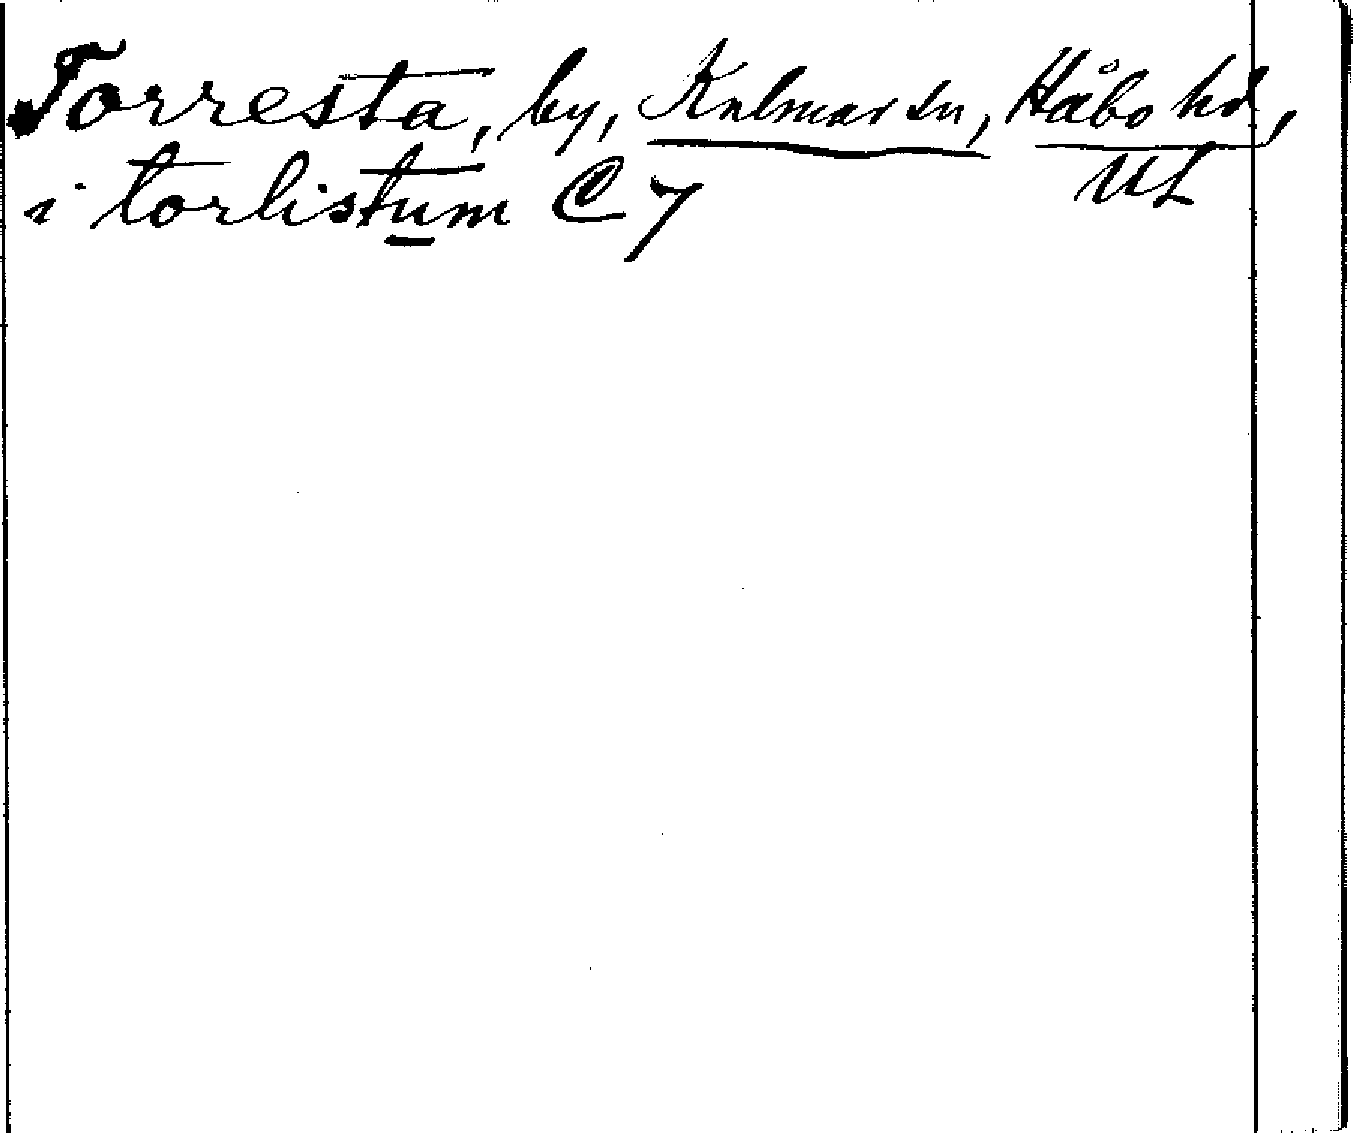 Torresta, by, Kalmar sn, Håbo hd,
UL
i torlistum C 7